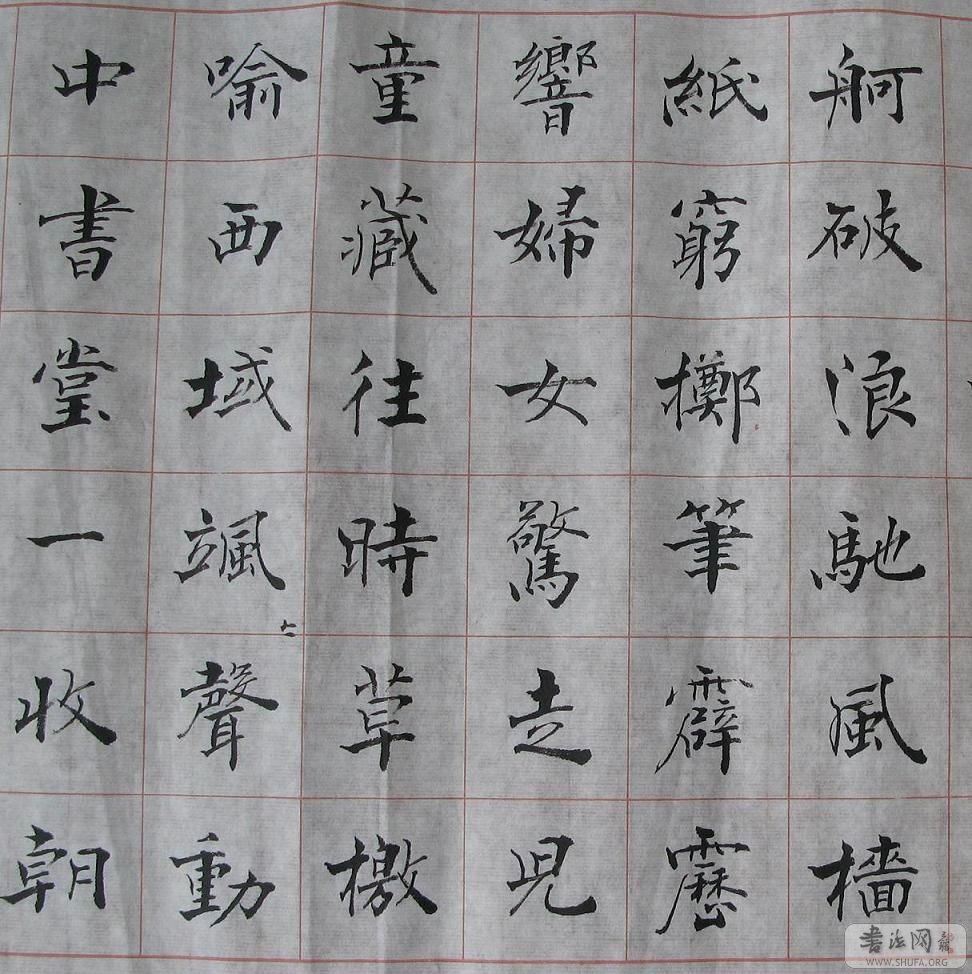 舸破浪馳風檣
紙窮擲筆霹靂
響婦女驚走兒
童藏往時草檄
喻西域颯〻聲動
中書堂一收朝
书法网
WWW.SHUFA.ORG